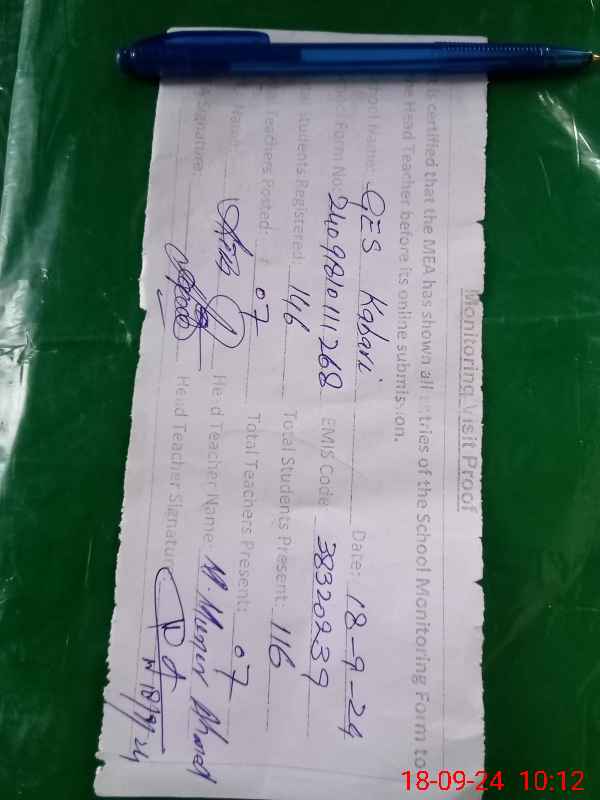 Monitoring Visit Proof
It is certified that the MEA has shown all entries of the School Monitoring Form to
the Head Teacher before its online submission.
School Name: GES Kabari Date: 18-9-24
Form No: 2409181011268 EMIS Code: 38320239
Students Registered: 146 Total Students Present: 116
Teachers Posted: 07 Total Teachers Present: 07
Name: Head Teacher Name: M. Munir Ahmed
Signature: Head Teacher Signature: 18/9/24
18-09-24 10:12